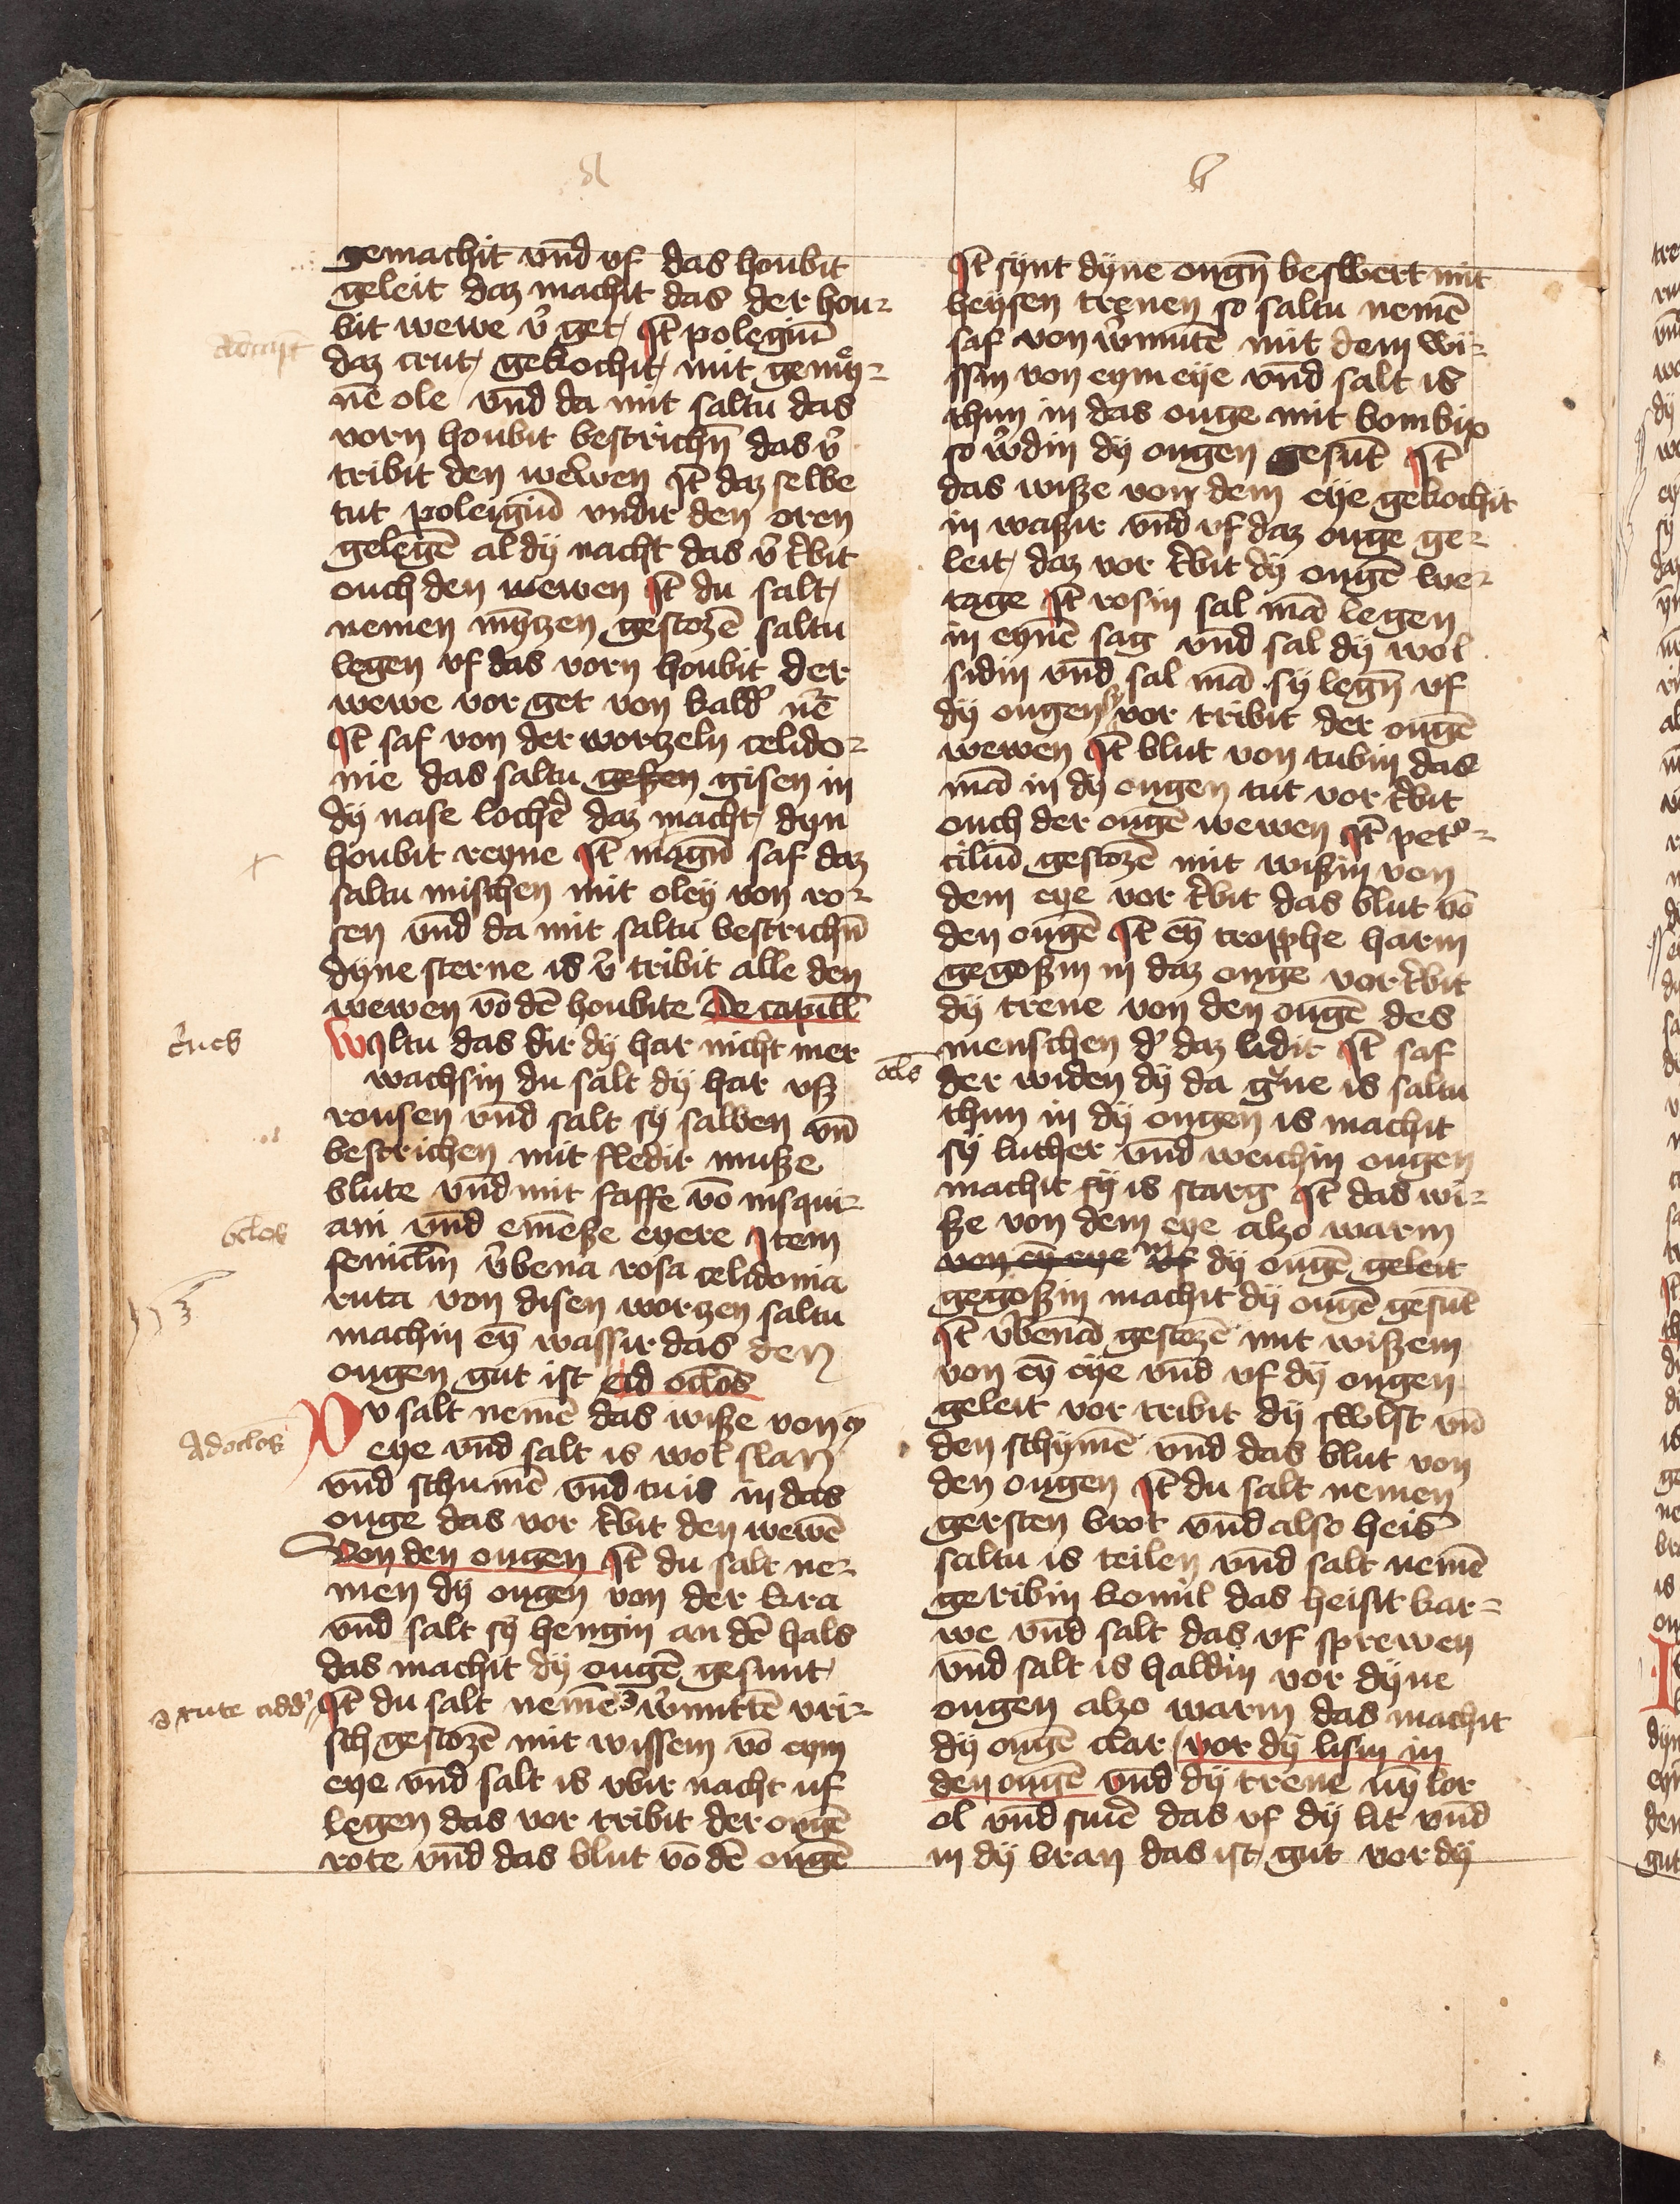 a
gemachit vnd vf das houbit
geleit daz machit das der hou-
bit wewe v᷑ get It̄ polegiū
daz crut gekochit mit gemey-
nē ole vnd da mit saltu das
vorn houbit bestrichn̄ das v᷑
tribit den wewen It̄ daz selbe
tut poleigiū vndir den oren
gelegē al dÿ nacht das v᷑ t᷑bit
ouch den wewen It̄ du salt
nemen mȳtzen gestozē saltu
legen vf das vorn houbit der
wewe vor get von kald᷑
It̄ saf von der wortzeln celido-
nie das saltu geszen gisen in
dÿ nase loche᷑ daz macht dyn
houbit reyne It̄ magū saf daz
saltu mischen mit oley von ro-
sen vnd da mit saltu bestrichn̄
dyne sterne is v᷑ tribit alle den
wewen vō dē houbite De capill̄
Wyltu das dir dÿ har nicht mer
wachsin du salt dÿ har vsz
rousen vnd salt sÿ salben vn̄
bestrichen mit fledir musze
blute vnd mit saffe vō iusqui-
ani vnd emesze eyere Item
feniclm̄ v᷑bena rosa celidonia
ruta von disen wortzen saltu
machin eȳ wassir das den
ougen gut ist Ad oclōs
Dv salt nemē das wisze von ey
eye vnd salt is wol slan
vnd schumē vnd tu is in das
ouge das vor t᷑bit den wewē
Von den ougen It̄ du salt ne-
men dÿ ougen von der kra
vnd salt sÿ hengin an dē hals
das machit dÿ ougē gesunt
It̄ du salt nemē w᷑mutē vri-
sch gestozē mit wissem vō eym
eye vnd salt is vbir nacht uf
legen das vor tribit der ougē
rote vnd das blut vō dē ougē
crīes
oclos
Ad oclos
rute add᷑
ocls
b
It̄ synt dyne ougn̄ beswert mit
heysen trenen so saltu nemē
saf von w᷑mutē mit dem wi-
ssin von eym eye vnd salt is
thun in das ouge mit bombix
so w᷑din dÿ ougen gesūt It̄
das wisze von dem eye gekochit
in waszir vnd vf daz ouge ge-
leit daz vor t᷑bit dÿ ougē we-
tage It̄ rosin sal mā legen
in eynē sag vnd sal dÿ wol
sidin vnd sal mā sÿ legn̄ vf
dÿ ougen sÿ vor tribit der ougē
wewen It̄ blut von tubin das
mā in dÿ ougen tut vor t᷑bit
ouch der ougē wewen It̄ pet᷑-
ciliū gestozē mit wiszin von
dem eye vor t᷑bit das blut vō
den ougē It̄ eȳ tropphe harin
gegoszin in daz ouge vor t᷑bit
dÿ trene von den ougē des
menschen d᷑ daz lidit It̄ saf
der widen dÿ da g᷑ne is saltu
thun in dÿ ougen is machit
sÿ luther vnd weichin ougen
machit sÿ is starg It̄ das wi-
sze von dem eye alzo warm
von eȳ eye vf in dÿ ougē geleit
gegoszin machit dÿ ougē gesūt
It̄ v᷑benā gestozē mit wiszem
von eȳ eye vnd vf dÿ ougen
geleit vor tribit dÿ swlst vn̄
den schymē vnd das blut von
den ougen It̄ du salt nemen
gersten brot vnd also heis
saltu is teilen vnd salt nemē
geribin komil das heisit kar-
we vnd salt das vf sprewen
vnd salt is haldin vor dyne
ougen alzo warm das machit
dÿ ougē clar vor dÿ lisin in
den ougē vnd dÿ trene nÿ lor
ol vnd smē das vf dÿ lit vnd
in dÿ bran das ist gut vor dÿ